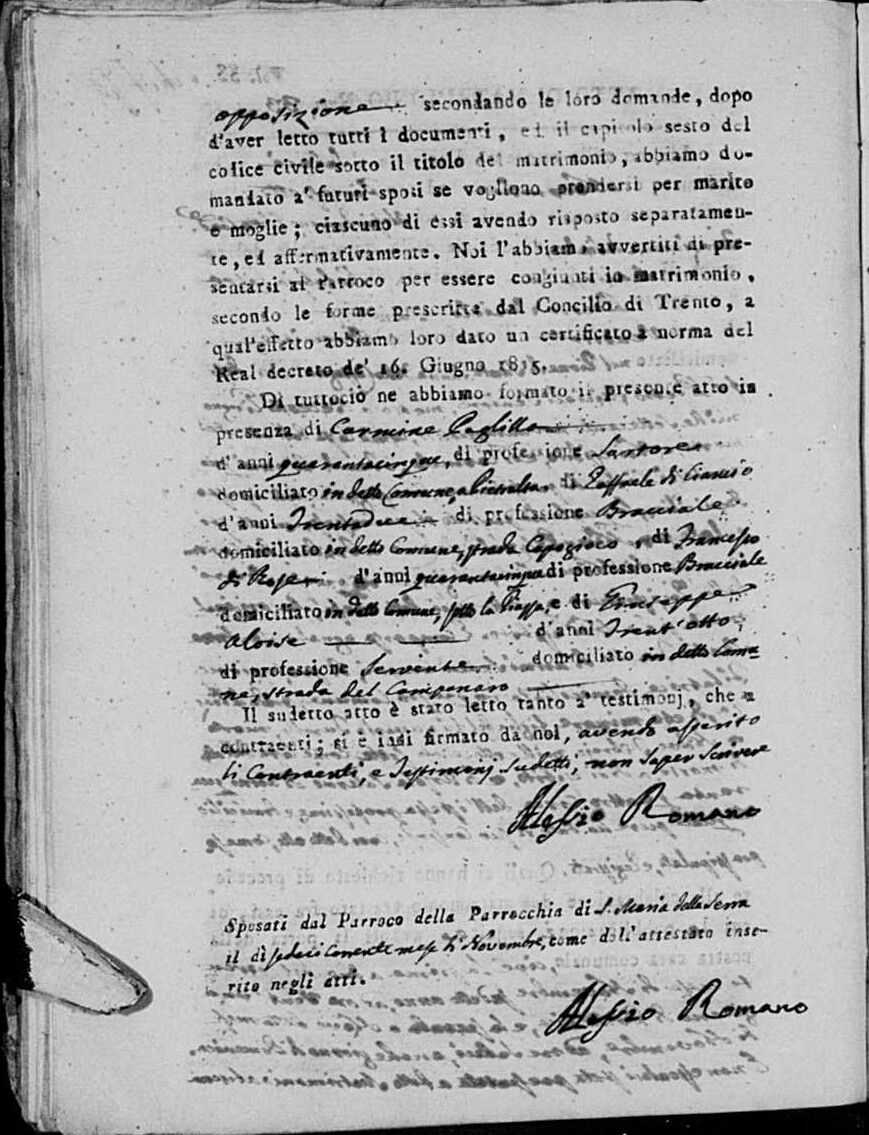 opposizione secondando le loro domande, dopo
d'aver letto tutti i documenti, ed il capitolo sesto del
codice civile sotto il titolo del matrimonio, abbiamo do-
mandato a' futuri sposi se vogliono prendersi per marito
e moglie; ciascuno di essi avendo risposto separatamen-
te, ed affermativamente. Noi l'abbiamo avvertiti di pre-
sentarsi al Parroco per essere congiunti in matrimonio,
secondo le forme prescritte dal Concilio di Trento, a
qual'effetto abbiamo loro dato un certificato a norma del
Real decreto de' 16. Giugno 1815.
Di tuttociò ne abbiamo formato il presente atto in
presenza di Carmine
d'anni quarantacinque, di professione Sartore
domiciliato in detto Comune, a Pietralta, di Raffaele di
d'anni Trentadue di professione Bracciale
domiciliato in detto Comune, strada Capogioco, di Francesco
di Rose d'anni quarantacinque di professione Bracciale
domiciliato in detto Comune, sotto la Piazza, e di Giuseppe
Aloise d'anni Trent'otto,
di professione Servente domiciliato in detto Comu
ne, strada del Campanaro
Il sudetto atto è stato letto tanto a' testimonj, che a
contraenti; si è indi firmato da noi, avendo asserito
li Contraenti, e Testimonj sudetti, non saper Scrivere
Alessio Romano
Sposati dal Parroco della Parrocchia di S. Maria della Serra
il dì sedeci Corrente mese di Novembre, come dall'attestato inse-
rito negli atti.
Alessio Romano